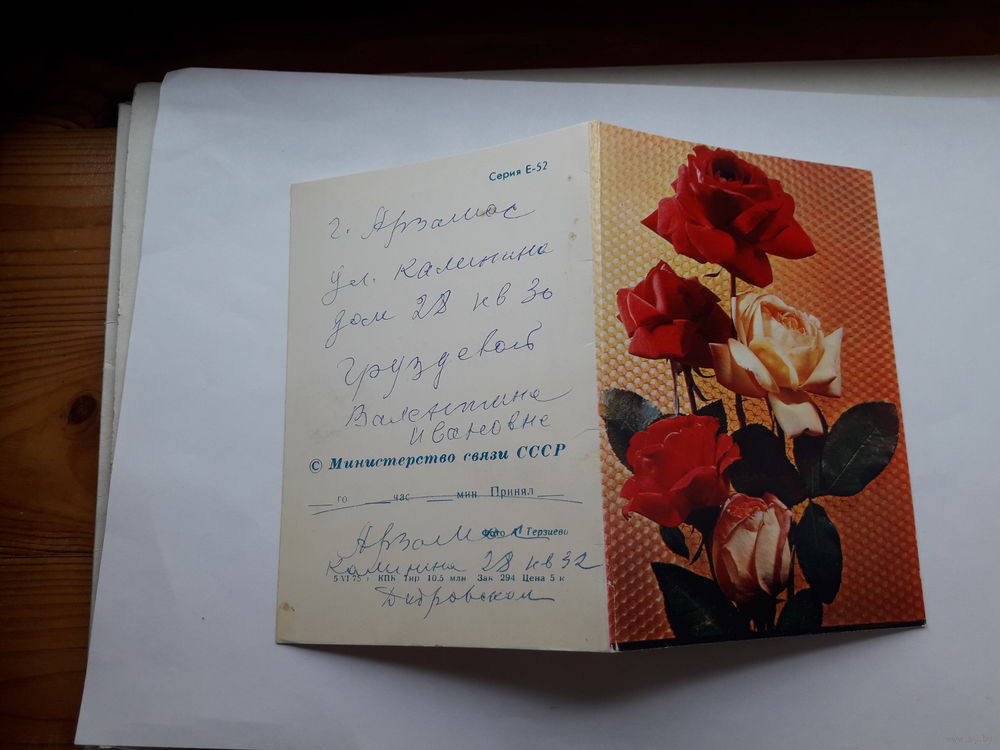 Серия Е-52
г. Арзамас
ул. Калинина
дом 28 кв 30
Груздевой
Валентине
Ивановне
© Министерство связи СССР
го час мин Принял
Арзамас
Фото Терзиева
Калинина 28 кв 32
5/VI 75 г КПК Тир 10,5 млн Зак 294 Цена 5 к